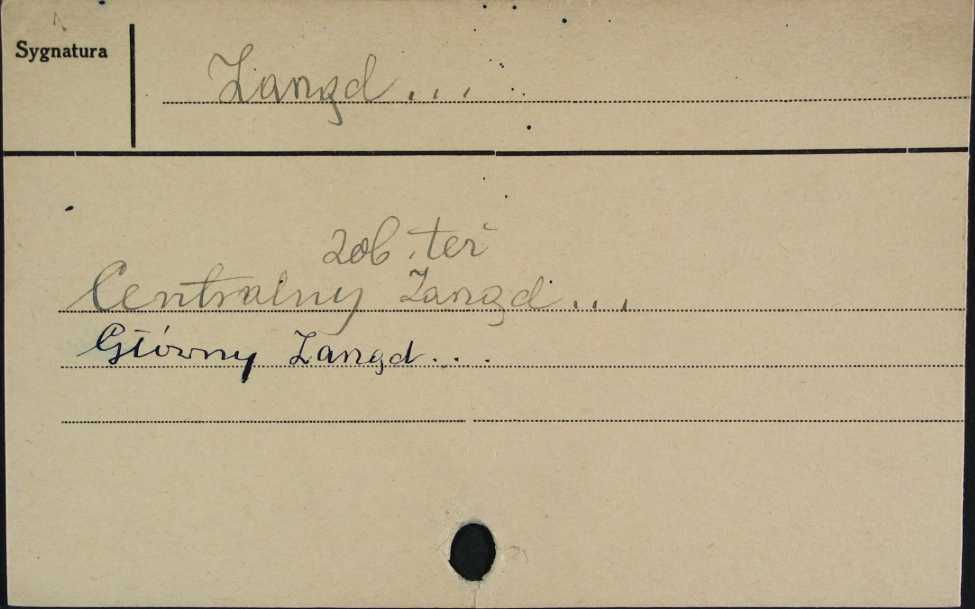 Sygnatura
Zarząd...
zob. też
Centralny Zarząd...
Główny Zarząd...